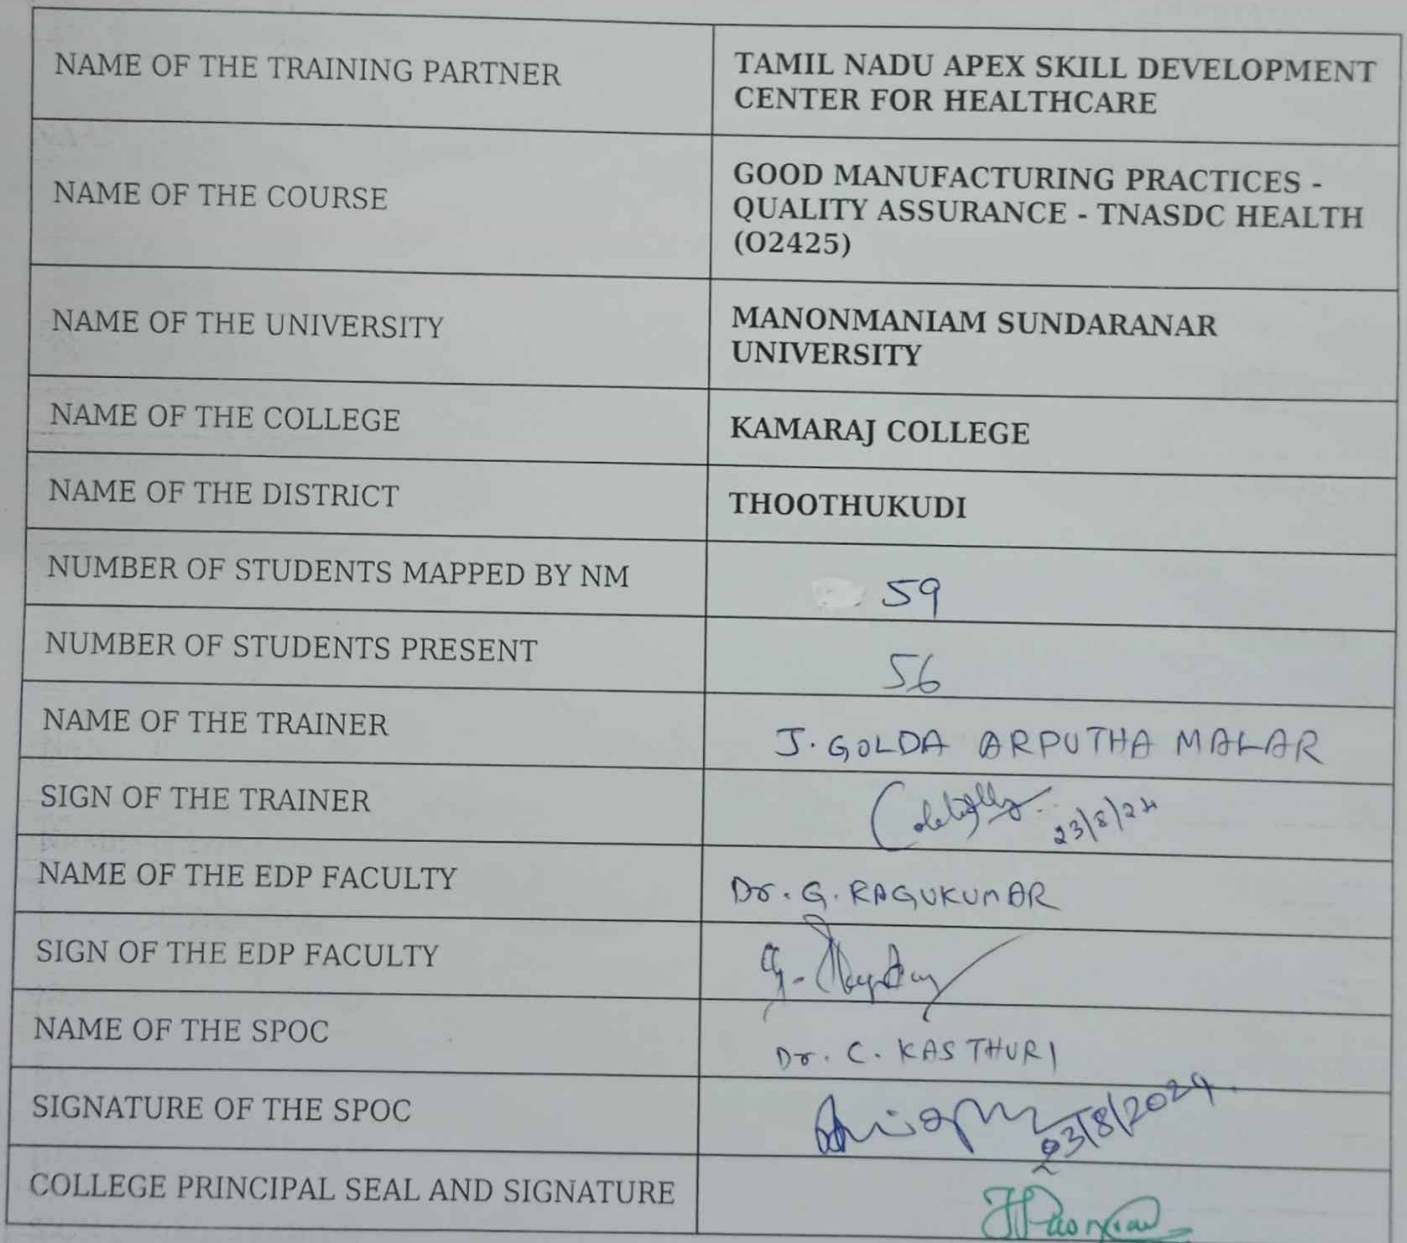 NAME OF THE TRAINING PARTNER
TAMIL NADU APEX SKILL DEVELOPMENT
CENTER FOR HEALTHCARE
NAME OF THE COURSE
GOOD MANUFACTURING PRACTICES -
QUALITY ASSURANCE - TNASDC HEALTH
(O2425)
NAME OF THE UNIVERSITY
MANONMANIAM SUNDARANAR
UNIVERSITY
NAME OF THE COLLEGE
KAMARAJ COLLEGE
NAME OF THE DISTRICT
THOOTHUKUDI
NUMBER OF STUDENTS MAPPED BY NM
59
NUMBER OF STUDENTS PRESENT
56
NAME OF THE TRAINER
J. GOLDA ARPUTHA MALAR
SIGN OF THE TRAINER
23/8/24
NAME OF THE EDP FACULTY
Dr. G. RAGUKUMAR
SIGN OF THE EDP FACULTY
NAME OF THE SPOC
Dr. C. KASTHURI
SIGNATURE OF THE SPOC
23/8/2024.
COLLEGE PRINCIPAL SEAL AND SIGNATURE